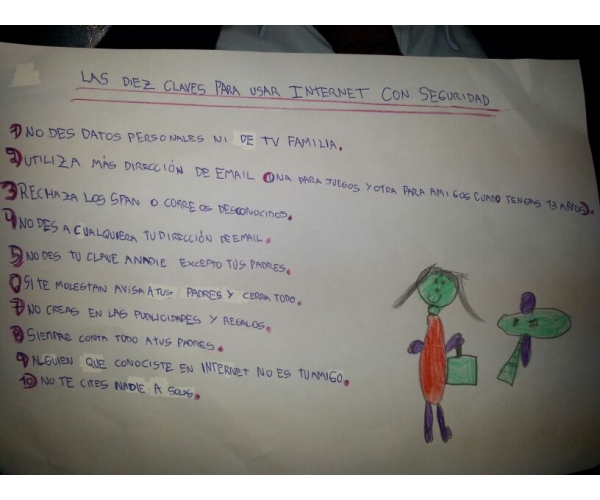 LAS DIEZ CLAVES PARA USAR INTERNET CON SEGURIDAD
1) NO DES DATOS PERSONALES NI DE TV FAMILIA.
2) UTILIZA MÁS DIRECCIÓN DE EMAIL UNA PARA JUEGOS Y OTRA PARA AMIGOS CUADO TENGAS 13 AÑOS).
3) RECHAZA LOS SPAN O CORREOS DESCONOCIDOS.
4) NO DES A CUALQUIERA TU DIRECCIÓN DE EMAIL.
5) NO DES TU CLAVE ANADIE EXCEPTO TUS PADRES.
6) SI TE MOLESTAN AVISA A TUS PADRES Y CERRA TODO.
7) NO CREAS EN LAS PUBLICIDADES Y REGALOS.
8) SIEMPRE CONTA TODO A TUS PADRES.
9) ALGUIEN QUE CONOCISTE EN INTERNET NO ES TU AMIGO.
10) NO TE CITES NADIE A SOLAS.